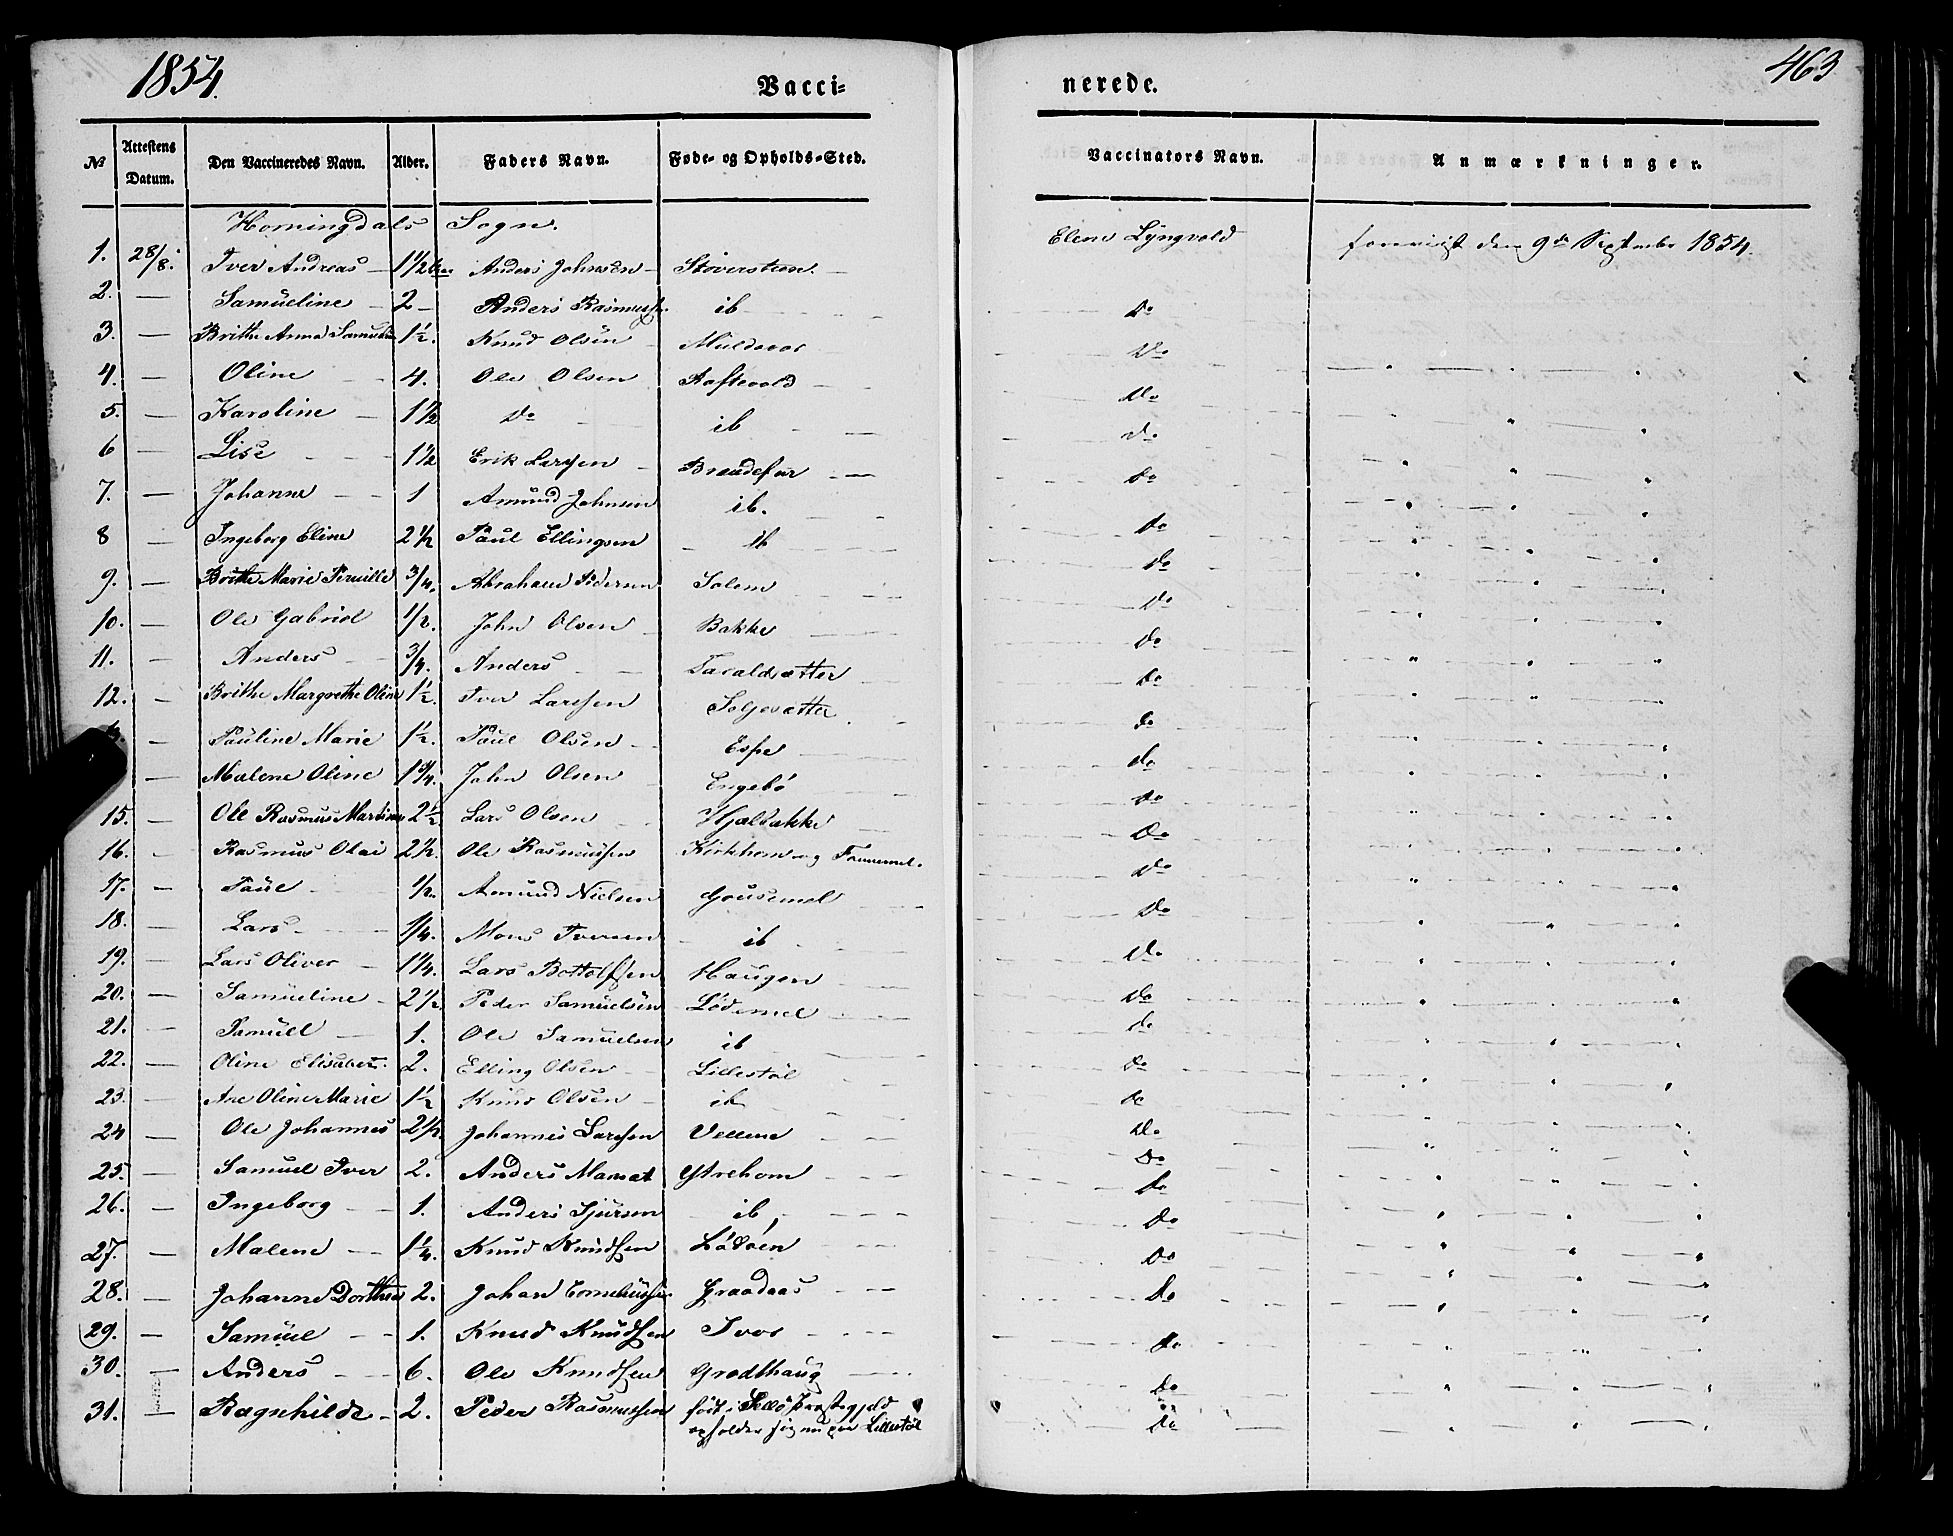 1854.
Vacci-
nerede.
463
№ Attestens Datum. Den Vaccineredes Navn. Alder. Faders Navn. Føde- og Opholds-Sted. Vaccinators Navn. Anmærkninger.
Horningdals Sogn.
1. 28/8. Iver Andreas 1 1/2 Anders Johnsen Støversteen. Elene Lyngvold foreviist den 9de September 1854.
2. — Samueline 2 — Anders Rasmussen ib Do
3. — Brithe Anna 1 1/2. Knud Olsen Muldsvor Do
4. — Oline 4. Ole Olsen Aaftevold Do
5. — Karoline 1 1/2 Do ib do
6 — Lise 1 1/2 Erik Larsen do
7. — Johanne 1 Amund Johnsen ib. do
8 — Ingeborg Eline 2 1/2 Paul Ellingsen ib do
9. — Brithe Marie Pernille 3/4. Abraham Pedersen Solem Do
10. — Ole Gabriel 1/2. John Olsen Bakke do
11. — Anders 3/4. Anders Taraldsætter do
12. — Brithe Margrethe Oline 1 1/2. Iver Larsen do
— Pauline Marie 1 1/2. Paul Olsen Espe do
— Malene Oline 1 3/4. John Olsen Engebö do
15. — Ole Rasmus Martinus 2 1/2 Lars Olsen Hjælbakke Do
16. Rasmus Olai 2 1/2. Ole Rasmussen Kirkhorn og Do
17. — Paul 1/2. Amund Nielsen Gousemel Do
18. — Lars 1/4. Mons Iversen ib Do
19. — Lars Oliver 1 1/4. Lars Bottolfsen Haugen Do
20. — Samueline 2 1/2. Peder Samuelsen Lødemel Do
21. — Samuel 1. Ole Samuelsen ib do
22. — Oline Elisabet 2. Elling Olsen Lillestøl do
23. — Ane Oline Marie 1 1/2 Knud Olsen ib do
24 — Ole Johannes 2 1/2. Johannes Larsen Vellene Do
25. — Samuel Iver 2. Anders Ytrehorn Do
26. — Ingeborg 1. Anders Sjursen ib do
27. — Malene 1 1/4. Knud Knudsen Lödöen Do
28. — Johanne Dorthea 2. Johan Corneliussen Graadaas Do
29. — Samuel 1. Knud Knudsen Ivos do
30. — Anders 6. Ole Knudsen Grodthaug Do
31. — Ragnhilde 2. Peder Rasmussen født i Selö Præstegjeld Do
opholder sig nu paa Lillestøl